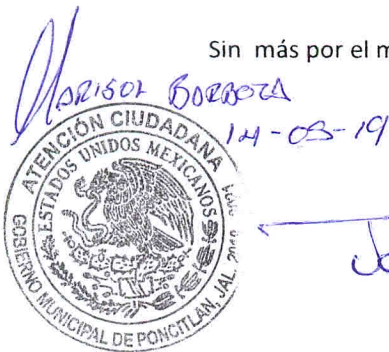 Sin más por el m
Marisol Borboza
14-03-19
ATENCIÓN CIUDADANA
ESTADOS UNIDOS MEXICANOS
GOBIERNO MUNICIPAL DE PONCITLAN, JAL.